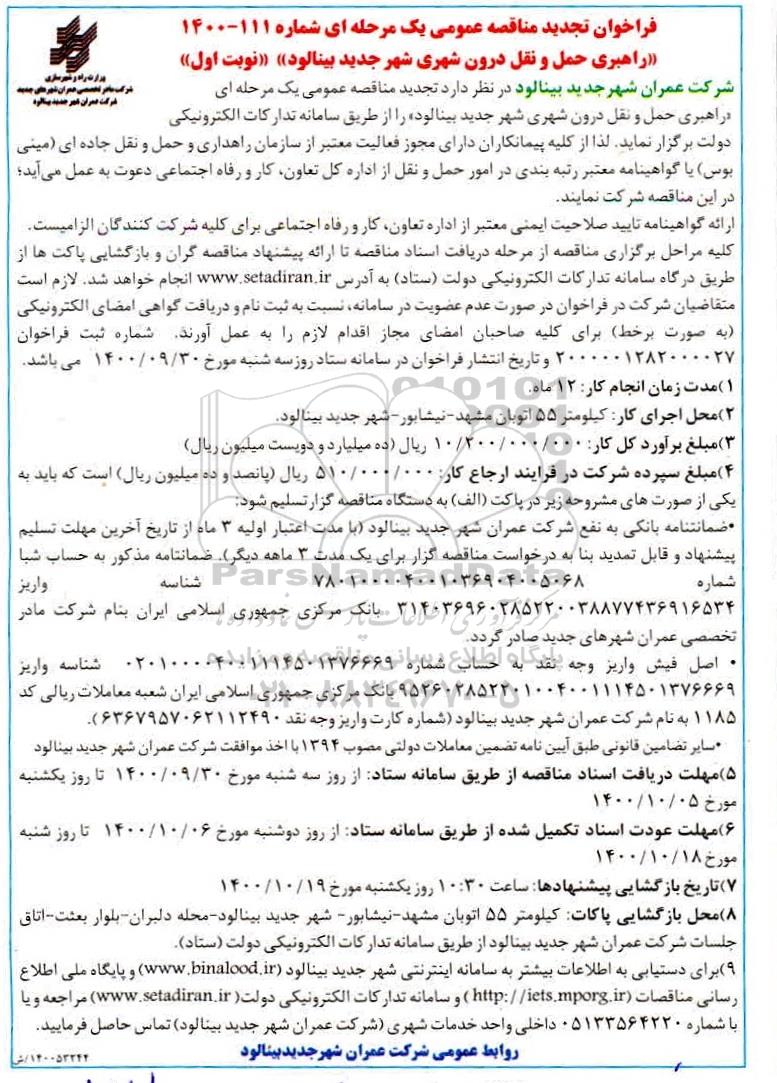 فراخوان تجدید مناقصه عمومی یک مرحله ای شماره ۱۱۱-۱۴۰۰
«راهبری حمل و نقل درون شهری شهر جدید بینالود» «نوبت اول»
وزارت راه و شهرسازی
شرکت مادر تخصصی عمران شهرهای جدید
شرکت عمران شهر جدید بینالود
شرکت عمران شهرجدید بینالود در نظر دارد تجدید مناقصه عمومی یک مرحله ای
«راهبری حمل و نقل درون شهری شهر جدید بینالود» را از طریق سامانه تدارکات الکترونیکی
دولت برگزار نماید. لذا از کلیه پیمانکاران دارای مجوز فعالیت معتبر از سازمان راهداری و حمل و نقل جاده ای (مینی
بوس) یا گواهینامه معتبر رتبه بندی در امور حمل و نقل از اداره کل تعاون، کار و رفاه اجتماعی دعوت به عمل می‌آید؛
در این مناقصه شرکت نمایند.
ارائه گواهینامه تایید صلاحیت ایمنی معتبر از اداره تعاون، کار و رفاه اجتماعی برای کلیه شرکت کنندگان الزامیست.
کلیه مراحل برگزاری مناقصه از مرحله دریافت اسناد مناقصه تا ارائه پیشنهاد مناقصه گران و بازگشایی پاکت ها از
طریق درگاه سامانه تدارکات الکترونیکی دولت (ستاد) به آدرس www.setadiran.ir انجام خواهد شد. لازم است
متقاضیان شرکت در فراخوان در صورت عدم عضویت در سامانه، نسبت به ثبت نام و دریافت گواهی امضای الکترونیکی
(به صورت برخط) برای کلیه صاحبان امضای مجاز اقدام لازم را به عمل آورند. شماره ثبت فراخوان
۲۰۰۰۰۰۱۲۸۲۰۰۰۰۲۷ و تاریخ انتشار فراخوان در سامانه ستاد روزسه شنبه مورخ ۱۴۰۰/۰۹/۳۰ می باشد.
۱)مدت زمان انجام کار: ۱۲ ماه.
۲)محل اجرای کار: کیلومتر ۵۵ اتوبان مشهد-نیشابور-شهر جدید بینالود.
۳)مبلغ برآورد کل کار: ۱۰/۲۰۰/۰۰۰/۰۰۰ ریال (ده میلیارد و دویست میلیون ریال)
۴)مبلغ سپرده شرکت در فرایند ارجاع کار: ۵۱۰/۰۰۰/۰۰۰ ریال (پانصد و ده میلیون ریال) است که باید به
یکی از صورت های مشروحه زیر در پاکت (الف) به دستگاه مناقصه گزار تسلیم شود:
•ضمانتنامه بانکی به نفع شرکت عمران شهر جدید بینالود (با مدت اعتبار اولیه ۳ ماه از تاریخ آخرین مهلت تسلیم
پیشنهاد و قابل تمدید بنا به درخواست مناقصه گزار برای یک مدت ۳ ماهه دیگر). ضمانتامه مذکور به حساب شبا
شماره ۷۸۰۱۰۰۰۰۴۰۰۱۰۳۶۹۰۴۰۰۵۰۶۸ شناسه واریز
۳۱۴۰۳۶۹۶۰۲۸۵۲۲۰۰۳۸۸۷۷۴۳۶۹۱۶۵۳۴ بانک مرکزی جمهوری اسلامی ایران بنام شرکت مادر
تخصصی عمران شهرهای جدید صادر گردد.
• اصل فیش واریز وجه نقد به حساب شماره ۰۲۰۱۰۰۰۰۴۰۰۱۱۱۴۵۰۱۳۷۶۶۶۹ شناسه واریز
۹۵۲۶۰۲۸۵۲۴۰۱۰۰۴۰۰۱۱۱۴۵۰۱۳۷۶۶۶۹ بانک مرکزی جمهوری اسلامی ایران شعبه معاملات ریالی کد
۱۱۸۵ به نام شرکت عمران شهر جدید بینالود (شماره کارت واریز وجه نقد ۶۳۶۷۹۵۷۰۶۲۱۱۲۴۹۰).
•سایر تضامین قانونی طبق آیین نامه تضمین معاملات دولتی مصوب ۱۳۹۴ با اخذ موافقت شرکت عمران شهر جدید بینالود
۵)مهلت دریافت اسناد مناقصه از طریق سامانه ستاد: از روز سه شنبه مورخ ۱۴۰۰/۰۹/۳۰ تا روز یکشنبه
مورخ ۱۴۰۰/۱۰/۰۵
۶)مهلت عودت اسناد تکمیل شده از طریق سامانه ستاد: از روز دوشنبه مورخ ۱۴۰۰/۱۰/۰۶ تا روز شنبه
مورخ ۱۴۰۰/۱۰/۱۸
۷)تاریخ بازگشایی پیشنهادها: ساعت ۱۰:۳۰ روز یکشنبه مورخ ۱۴۰۰/۱۰/۱۹
۸)محل بازگشایی پاکات: کیلومتر ۵۵ اتوبان مشهد-نیشابور- شهر جدید بینالود-محله دلبران-بلوار بعثت-اتاق
جلسات شرکت عمران شهر جدید بینالود از طریق سامانه تدارکات الکترونیکی دولت (ستاد).
۹)برای دستیابی به اطلاعات بیشتر به سامانه اینترنتی شهر جدید بینالود (www.binalood.ir) و پایگاه ملی اطلاع
رسانی مناقصات (http://iets.mporg.ir) و سامانه تدارکات الکترونیکی دولت( www.setadiran.ir) مراجعه و یا
با شماره ۰۵۱۳۳۵۶۴۲۲۰ داخلی واحد خدمات شهری (شرکت عمران شهر جدید بینالود) تماس حاصل فرمایید.
روابط عمومی شرکت عمران شهرجدیدبینالود
۱۴۰۰۵۳۲۴۴/ش
ParsNamadData
پایگاه اطلاع رسانی مناقصه و مزایده